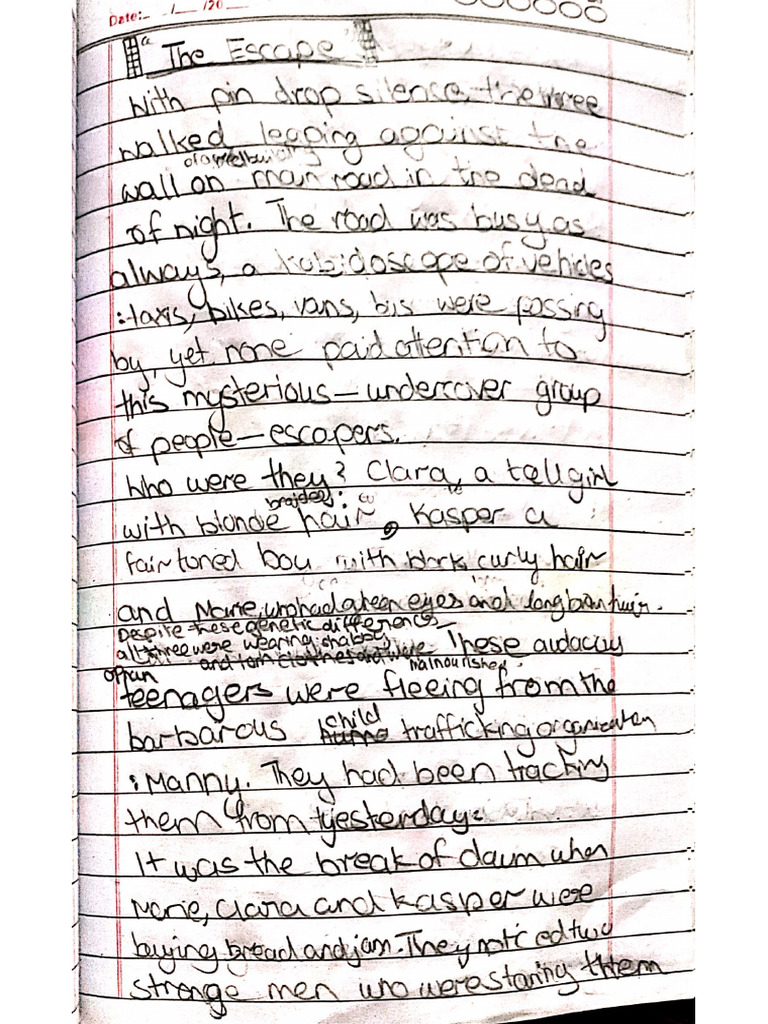 Date:- / /20
The Escape
With pin drop silence, the three
walked leaping against the
of a hotel building
wall on main road in the dead
of night. The road was busy as
always, a kaleidoscope of vehicles
: taxis, bikes, vans, bus were passing
by, yet none paid attention to
this mysterious - undercover group
of people - escapers.
Who were they? Clara, a tall girl
braided
with blonde hair, Kasper a
fair toned boy with black curly hair
and Marie, who had green eyes and long brown hair.
Despite these genetic differences,
all three were wearing shabby
and torn clothes and were malnourished. These audacuy
orphan
teenagers were fleeing from the
child
barbarous trafficking organization
: Manny. They had been tracking
them from yesterday.
It was the break of dawn when
Marie, Clara and Kasper were
buying bread and jam. They noticed two
strange men who were staring them